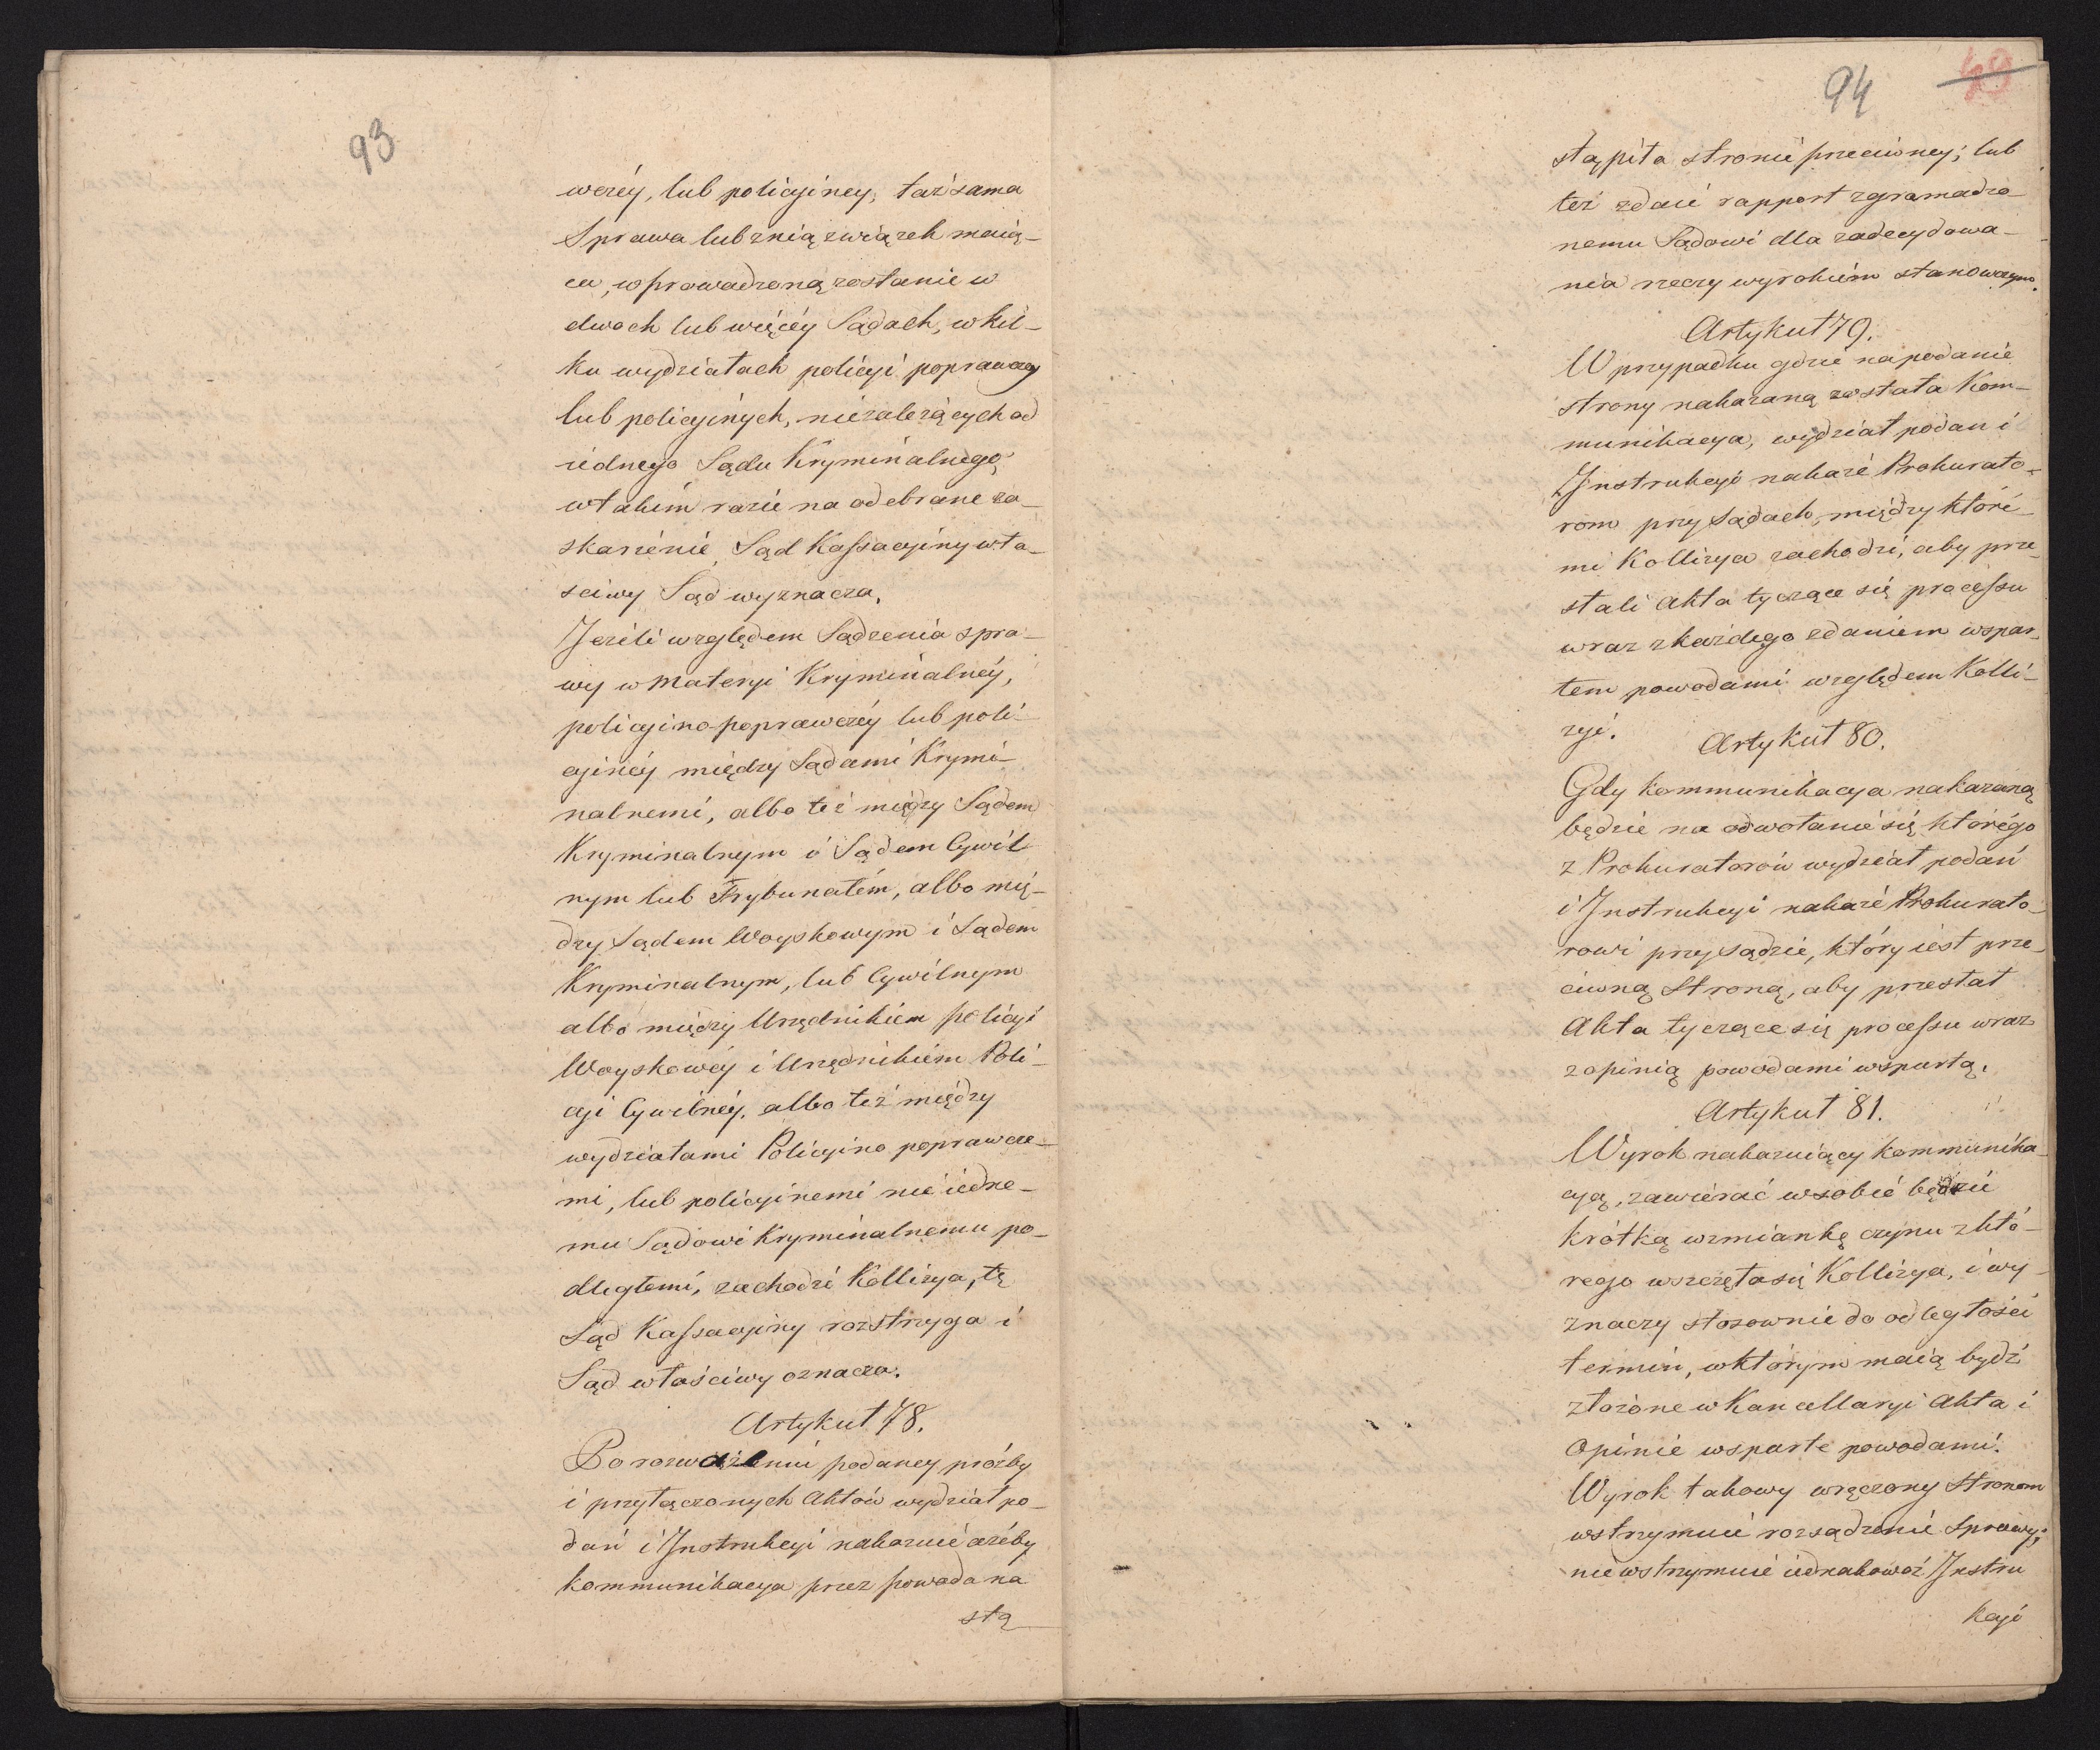 93
wczéy, lub policyiney, taż sama
Sprawa lub z nią związek maią-
ca, wprowadzoną zostanie w
dwoch lub więcéy Sądach, w kil-
ku wydziałach policyi poprawczey
lub policyinych, niezależących od
iednego Sądu Kryminalnego;
w takim razie na odebrane za-
skarżenie, Sąd Kassacyiny wła-
sciwy Sąd wyznacza.
Jeżeli względem Sądzenia spra-
wy w Materyi Kryminalnéy,
policyino-poprawczéy lub poli-
cyinéy między Sądami Krymi-
nalnemi, albo też między Sądem
Kryminalnym i Sądem Cywil-
nym lub Trybunałem, albo mię-
dzy Sądem Woyskowym i Sądem
Kryminalnym, lub Cywilnym
albo między Urzędnikiem policyi
Woyskowéy i Urzędnikiem Poli-
cyi Cywilnéy, albo też między
wydziałami Policyino poprawcze-
mi, lub policyinemi nie iedne-
mu Sądowi Kryminalnemu po-
dległemi, zachodzi Kollizya, tę
Sąd Kassacyiny rozstrzyga i
Sąd właściwy oznacza.
Artykuł 78.
Po rozważeniu podaney prożby
i przyłączonych Aktów wydział po-
dań i Instrukcyi nakazuie ażeby
kommunikacya przez powoda na
stą
94 49
stąpiła stronie przeciwney; lub
też zdaie rapport zgromadzo-
nemu Sądowi dla zadecydowa-
nia rzeczy wyrokiem stanowczym.
Artykuł 79.
W przypadku gdzie na podanie
strony nakazaną została Kom-
munikacya, wydział podań i
Instrukcyi nakaże Prokurato-
rom przy Sądach, między które-
mi Kollizya zachodzi, aby prze-
słali Akta tyczące się processu
wraz z każdego zdaniem wspar-
tem powodami względem Kolli-
zyi.
Artykuł 80.
Gdy kommunikacya nakazaną
będzie na odwołanie się którego
z Prokuratorów wydział podań
i Instrukcyi nakaże Prokurato-
rowi przy sądzie, który iest prze-
ciwną Stroną, aby przesłał
Akta tyczące się processu wraz
z opinią powodami wspartą.
Artykuł 81.
Wyrok nakazuiący kommunika-
cyą, zawierać w sobie będzie
krótką wzmiankę czynu z któ-
rego wszczęła się Kollizya, i wy-
znaczy stosownie do odległości
termin, w którym maią bydź
złożone w Kancellaryi Akta i
Opinie wsparte powodami.
Wyrok takowy wręczony Stronom
wstrzymuie rozsądzenie Sprawy;
nie wstrzymuie iednakowoż Instru
kcyi